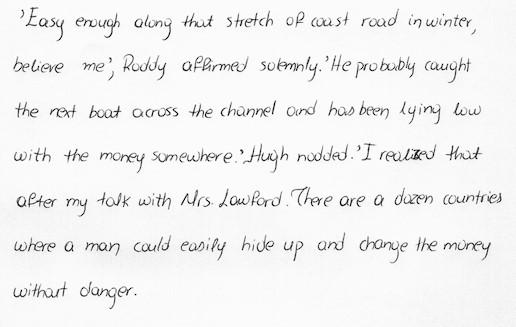 'Easy enough along that stretch of coast road in winter,
believe me', Roddy affirmed solemnly. 'He probably caught
the next boat across the channel and has been lying low
with the money somewhere.' Hugh nodded. 'I realized that
after my talk with Mrs. Lawford. There are a dozen countries
where a man could easily hide up and change the money
without danger.